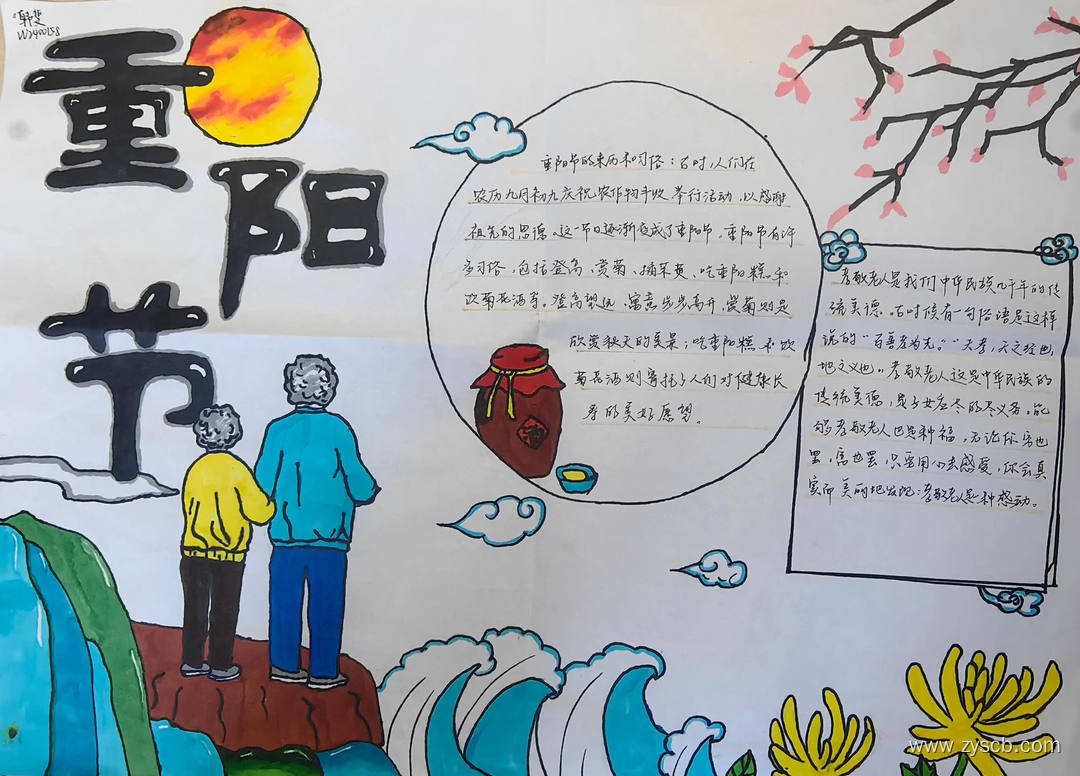 重阳节
重阳节的来历和习俗:古时,人们在
农历九月初九庆祝农作物丰收举行活动,以感谢
祖先的恩德。这一节日逐渐变成了重阳节。重阳节有许
多习俗,包括登高、赏菊、插茱萸、吃重阳糕和
饮菊花酒等。登高望远,寓意步步高升,赏菊则是
欣赏秋天的美景;吃重阳糕和饮
菊花酒则寄托了人们对健康长
寿的美好愿望。
酒
孝敬老人是我们中华民族几千年的传
统美德。古时候有一句俗语是这样
说的"百善孝为先。""夫孝,天之经也,
地之义也"。孝敬老人这是中华民族的
传统美德,是子女应尽的义务,能
够孝敬老人也是种福,无论你穷也
罢,富也罢,只要用心去感受,你会真
实而美丽地发现:孝敬老人是种感动。
www.zyscb.com